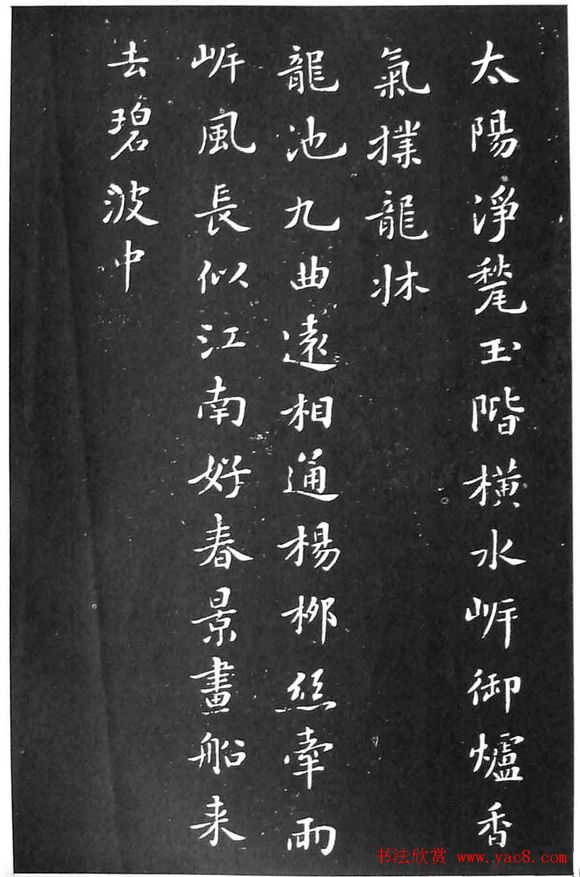 太陽淨甃玉階横水岸御爐香
氣撲龍牀
龍池九曲遠相通楊柳絲牽兩
岸風長似江南好春景畫船来
去碧波中
书法欣赏 www.yac8.com